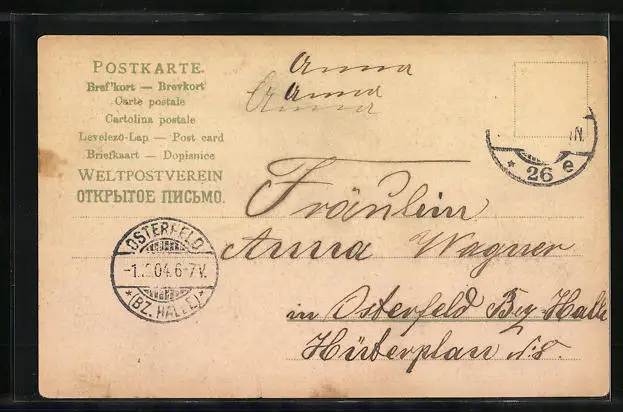 POSTKARTE.
Brefkort — Brevkort
Carte postale
Cartolina postale
Levelező-Lap — Post card
Briefkaart — Dopisnice
WELTPOSTVEREIN
ОТКРЫТОЕ ПИСЬМО.
Anna
Anna
Anna
IN.
* 26 e
Fräulein
Anna Wagner
in Osterfeld Bez Halle
OSTERFELD
04.6-7V.
*(BZ. HALLE)*